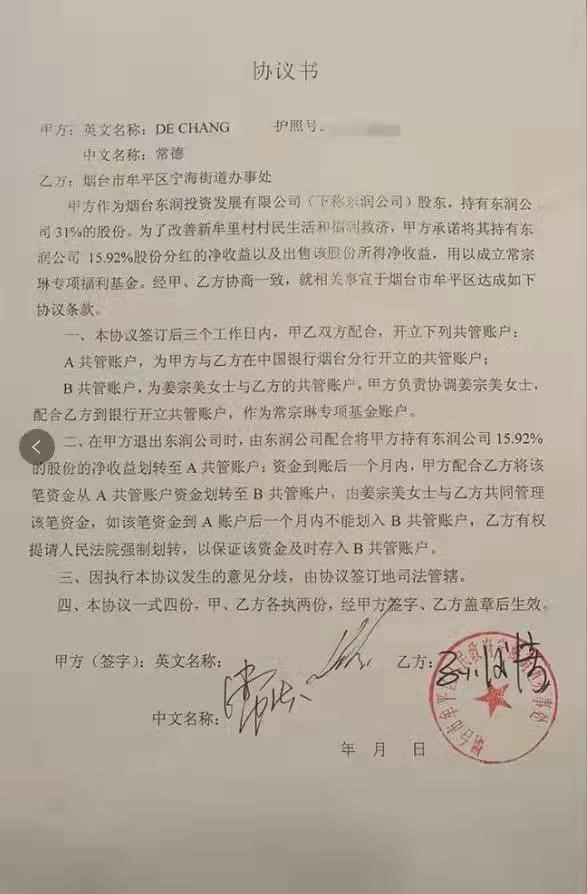 协议书
甲方：英文名称：DE CHANG 护照号.
中文名称：常德
乙方：烟台市牟平区宁海街道办事处
甲方作为烟台东润投资发展有限公司（下称东润公司）股东，持有东润公
司31%的股份。为了改善新牟里村村民生活和福利救济，甲方承诺将其持有东
润公司 15.92%股份分红的净收益以及出售该股份所得净收益，用以成立常宗
琳专项福利基金。经甲、乙方协商一致，就相关事宜于烟台市牟平区达成如下
协议条款。
一、本协议签订后三个工作日内，甲乙双方配合，开立下列共管账户：
A 共管账户，为甲方与乙方在中国银行烟台分行开立的共管账户；
B 共管账户，为姜宗美女士与乙方的共管账户，甲方负责协调姜宗美女士，
配合乙方到银行开立共管账户，作为常宗琳专项基金账户。
二、在甲方退出东润公司时，由东润公司配合将甲方持有东润公司 15.92%
的股份的净收益划转至 A 共管账户；资金到账后一个月内，甲方配合乙方将该
笔资金从 A 共管账户资金划转至 B 共管账户，由姜宗美女士与乙方共同管理
该笔资金，如该笔资金到 A 账户后一个月内不能划入 B 共管账户，乙方有权
提请人民法院强制划转，以保证该资金及时存入 B 共管账户。
三、因执行本协议发生的意见分歧，由协议签订地司法管辖。
四、本协议一式四份，甲、乙方各执两份，经甲方签字、乙方盖章后生效。
甲方（签字）：英文名称： 乙方：
中文名称：常德
年 月 日